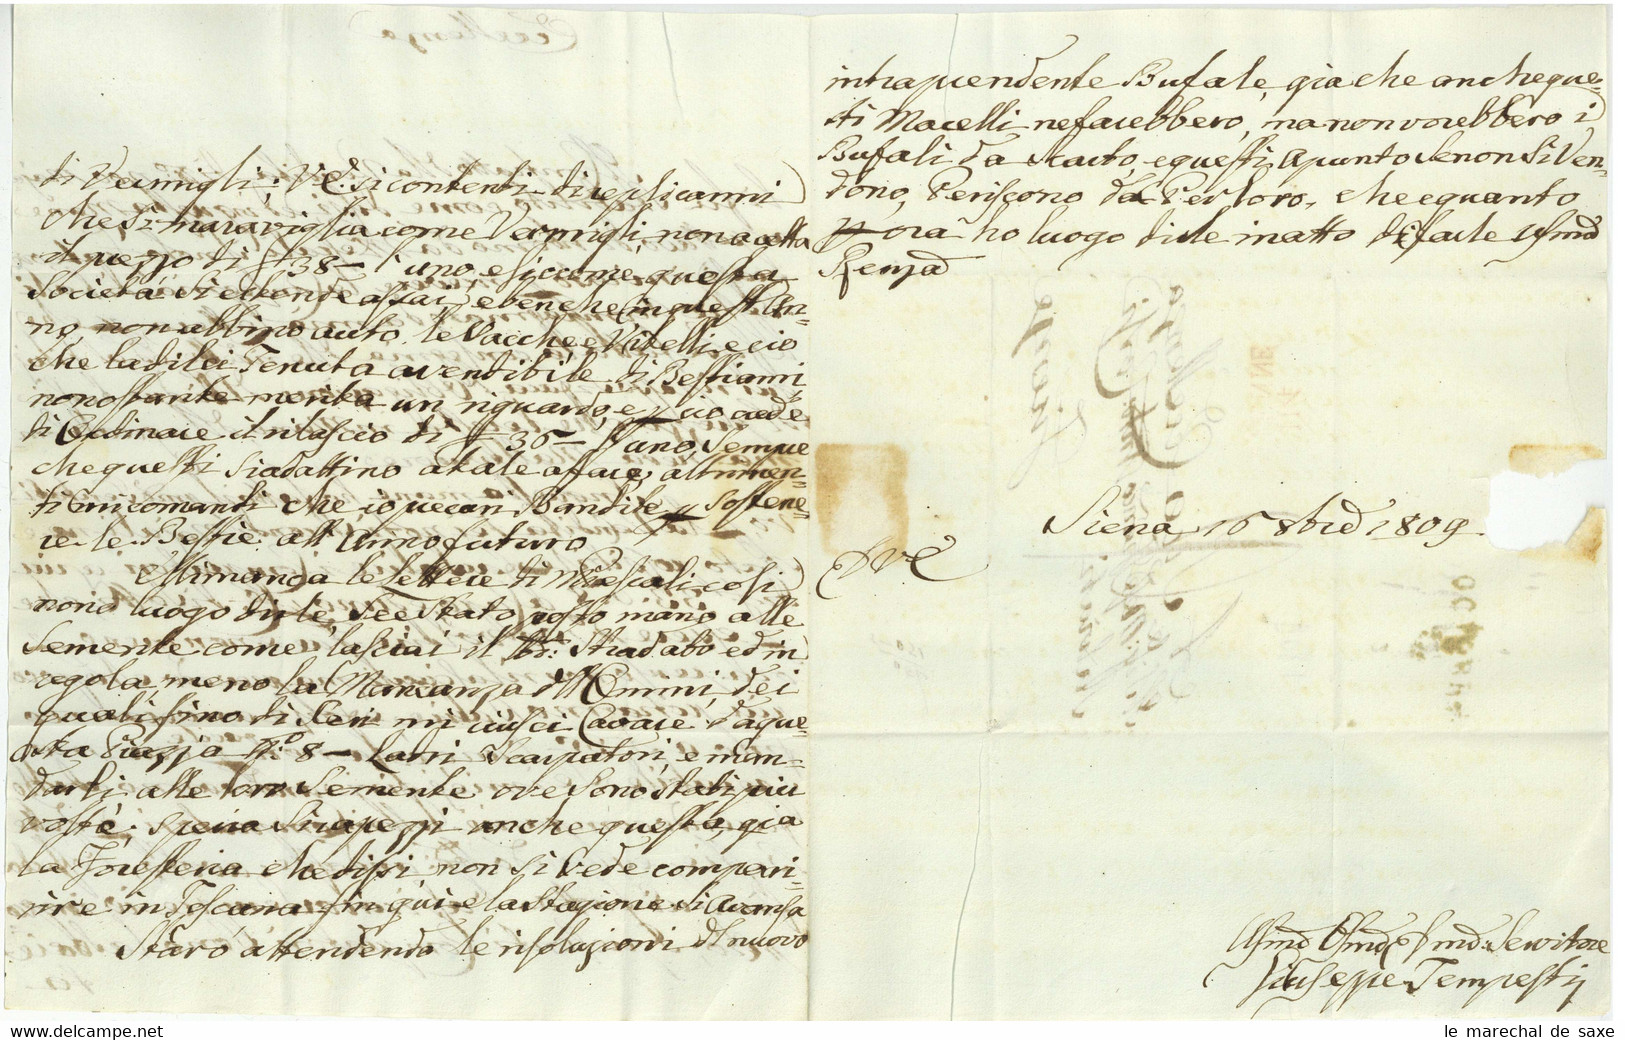 di Vermigli; V.E. si contenti di replicarmi
che si maraviglia come Vermigli, non accetta
il prezzo di £ 38 - l'uno, e siccome questa
Società si estende assai, e benche in quest'An-
no, non abbino auto le Vacche e Vitelli, e cio
che la di lei Tenuta a vendibile di Bestiami,
nonostante merita un riguardo, e p cio crede
di Ordinare il rilascio di £ 36 - l'uno, sempre
che questi si adattino a tale affare, altrimen-
ti mi comanti che io procuri Bandite p sostene-
re le Bestie all'anno futuro
Mi manca le Lettere di Mrescali, cosi
non o luogo dirle, se è stato posto mano alle
Semente come lasciai il Stradato ed in
regola, meno la Mancanza dell'Omini, dei
quali fino di Ieri mi riusci Cavare da que-
sta Piazza N.o 8 - Lavri Scarpatori, e man-
darli alle lor Semente ove sono stati piu
volte; spera si rapezzi anche questa, gia
la Foresteria che dissi, non si vede compari-
rire in Toscana fin qui e la stagione si avansa
Starò attendendo le risoluzioni del nuovo
intraprendente Bufale, gia che anche que-
sti Macelli ne farebbero, ma non vorebbero i
Bufali da Scarto, e questi apunto se non si Ven-
dono, Periscono da Per loro, che e quanto
p ora ho luogo dirle in atto di farle
Renza
Siena 16 8bre 1809.
D V E
Servitore
Giuseppe Tempestij
OCTOBRE
le marechal de saxe
www.delcampe.net